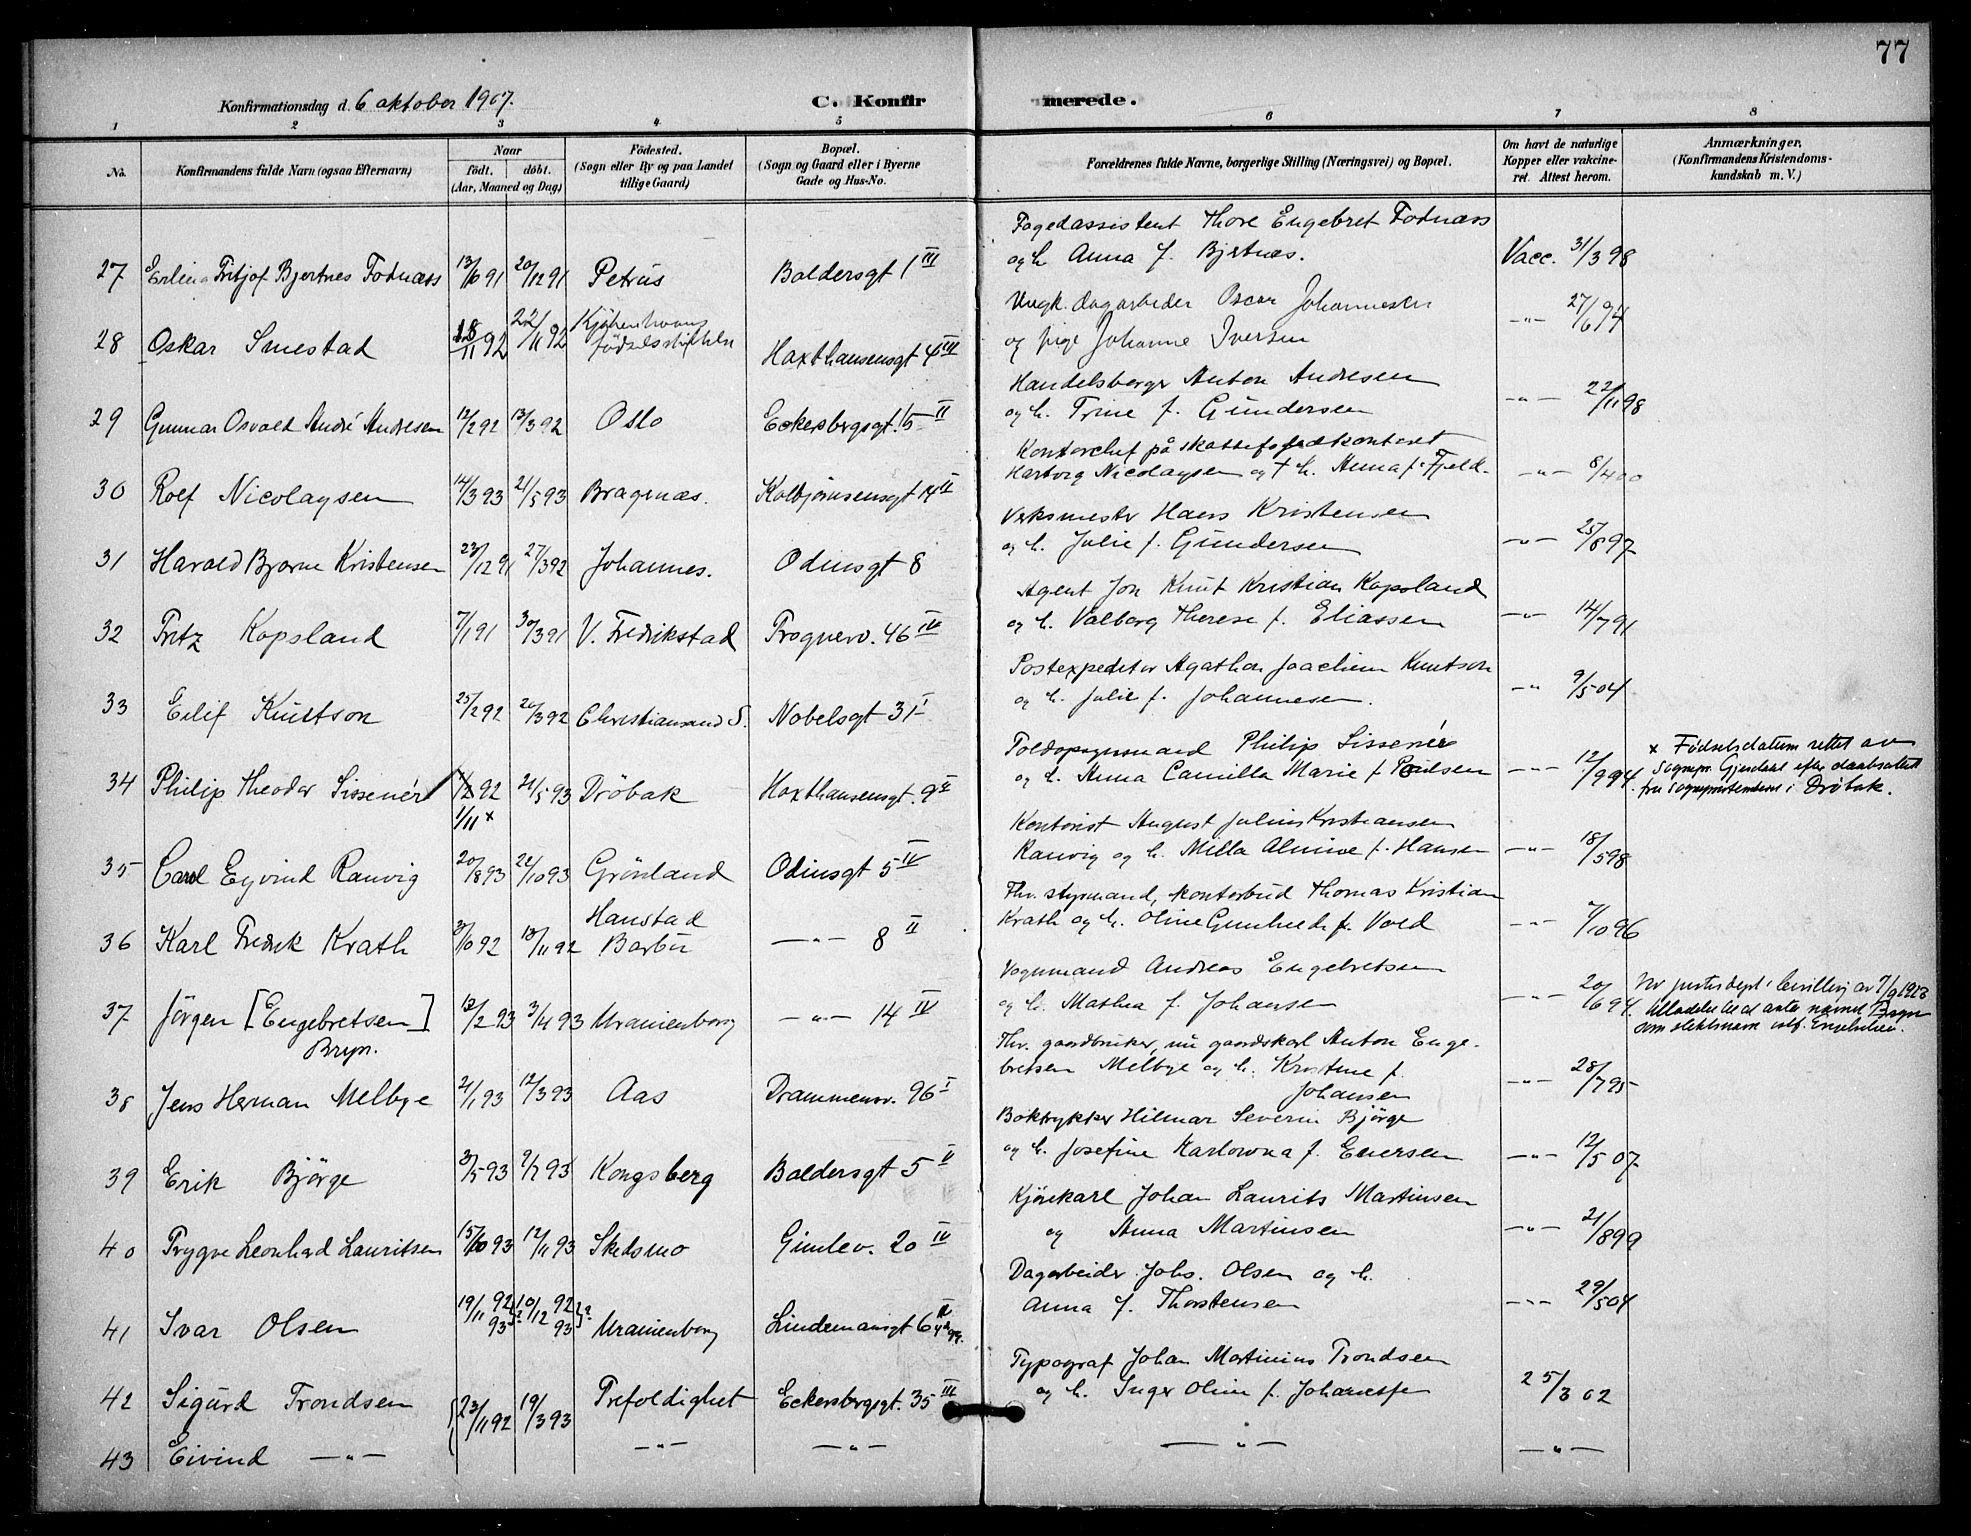 77
Konfirmationsdag d. 6 oktober 1907.
C. Konfirmerede.
1 2 3 4 5 6 7 8
No.
Konfirmandens fulde Navn (ogsaa Efternavn)
Naar
født. døbt.
(Aar, Maaned og Dag)
Fødested.
(Sogn eller By og paa Landet
tillige Gaard)
Bopæl.
(Sogn og Gaard eller i Byerne
Gade og Hus-No.
Forældrenes fulde Navne, borgerlige Stilling (Næringsvei) og Bopæl.
Om havt de naturlige
Kopper eller vakcine-
ret. Attest herom.
Anmærkninger.
(Konfirmandens Kristendoms-
kundskab m. V.)
Fogedassistent Thore Engebret Fodnæss
27 Erling Fritjof Bjertnes Fodnæss 13/10 91 20/12 91 Petrus Baldersgt 1 III og h. Anna f. Bjertnæs. Vacc. 31/3 98
Ungk. dagarbeider Oscar Johannesen
28 Oskar Smestad 18/11 92 22/11 92 Kjøbenhavns fødselsstiftelse Haxthausensgt 4 III og pige Johanne Iversen -"- 27/6 94
Handelsborger Anton Andresen
29 Gunnar Osvald André Andresen 12/2 92 13/3 92 Oslo Eckersbergsgt. 15 II og h. Trine f. Gundersen -"- 22/11 98
Kontorchef på skattefogedkontoret
30 Rolf Nicolaysen 14/3 93 21/5 93 Bragenæs. Kolbjørnsensgt 14 II Hartvig Nicolaysen og † h. Anna f. Fjeld. -"- 8/4 00
Verksmester Hans Kristensen
31 Harald Bjarne Kristensen 23/12 91 27/3 92 Johannes. Odinsgt 8 og h. Julie f. Gundersen -"- 25/8 97
Agent Jon Knut Kristian Kopsland
32 Fritz Kopsland 7/1 91 30/3 91 V. Fredrikstad Frognerv. 46 IV og h. Valborg Therese f. Eliassen -"- 14/7 91
Postexpeditor Agathon Joachim Knutson
33 Eilif Knutson 25/2 92 20/3 92 Christiansand S. Nobelsgt 31 I og h. Julie f. Johannesen. -"- 9/5 04
Toldopsynsmand Philip Sissenér
34 Philip Theodor Sissenér 1/12 92 21/5 93 Drøbak Haxthausensgt. 9 II og h. Anna Camilla Marie f. Poulsen -"- 12/9 94
1/11 x
x Fødselsdatum rettet av
Sognepr. Gjendahl efter daabsattest
fra Sogneprestembedet i Drøbak.
Kontorist August Julius Kristiansen
35 Carl Eyvind Rauvig 20/8 93 22/10 93 Grønland Odinsgt 5 IV Rauvig og h. Milla Almine f. Hansen -"- 18/5 98
Fhv. styrmand, kontorbud Thomas Kristian
36 Karl Fredrik Krath 3/10 92 13/11 92 Haustad Barbu -"- 8 II Krath og h. Oline Gunhilde f. Vold -"- 7/10 96
Vognmand Andreas Engebretsen
37 Jørgen [Engebretsen] Bryn. 12/2 93 3/4 93 Uranienborg -"- 14 IV og h. Mathea f. Johansen -"- 20/6 94
Ved justisdept.s bevilling av 7/9 1923
tilladelse til at anta navnet Bryn
som slektsnavn istf. Engebretsen.
Fhv. gaardbruker, nu gaardskarl Anton Enge-
38 Jens Herman Melbye 21/1 93 12/3 93 Aas Drammensv. 96 I bretsen Melbye og h. Kristine f. Johansen -"- 28/7 95
Boktrykker Hilmar Severin Bjørge
39 Erik Bjørge 3/5 93 9/7 93 Kongsberg Baldersgt 5 II og h. Josefine Karlowna f. Enersen -"- 12/5 07
Kjørekarl Johan Laurits Martinsen
40 Trygve Leonhard Lauritsen 15/10 93 12/11 93 Skedsmo Gimlev. 20 IV og Anna Martinsen -"- 21/8 99
Dagarbeider Johs. Olsen og h.
41 Ivar Olsen 19/11 92 93 }? 10/12 92 93 }? Uranienborg Lindemansgt 6 II Anna f. Thorstensen -"- 29/5 04
Typograf Johan Martinius Trondsen
42 Sigurd Trondsen 23/11 92 19/3 93 Trefoldighet Eckersbergsgt. 35 III og h. Inger Oline f. Johannesen 25/3 02
43 Eivind -"- -"- -"- -"- -"-